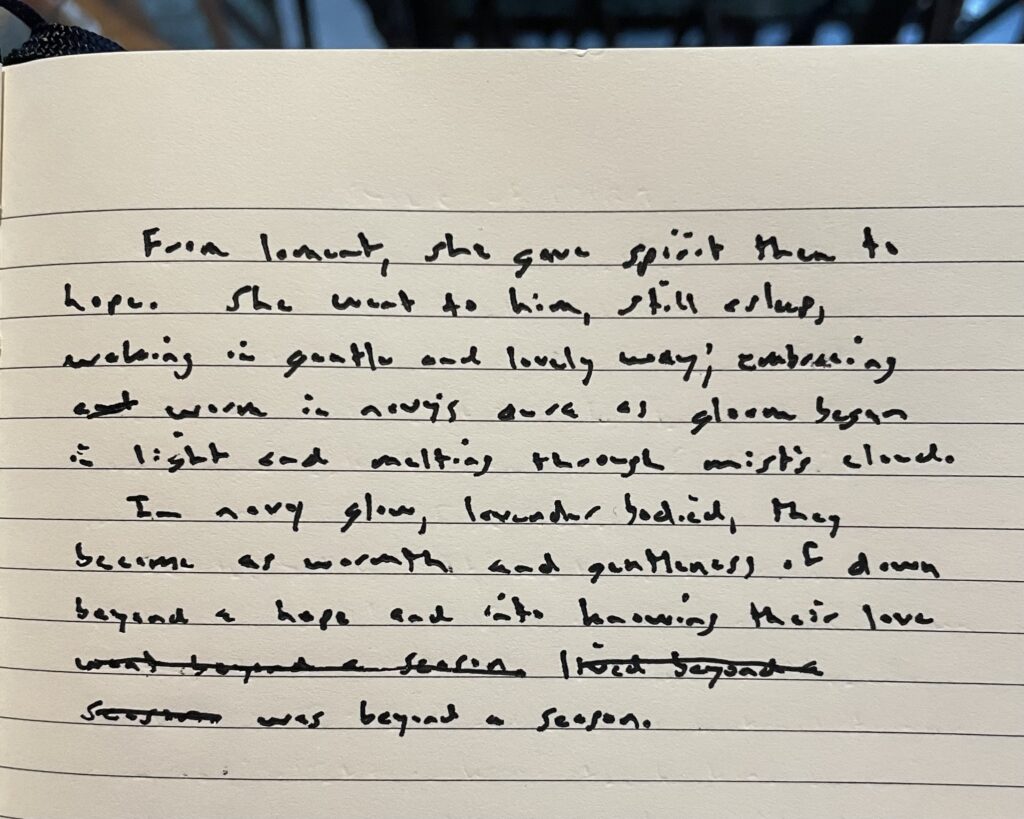 From lament, she gave spirit then to
hope. She went to him, still asleep,
waking in gentle and lovely way; embracing
and warm in navy's aura as gloom began
in light and melting through mist's cloud.
In navy glow, lavender bodied, they
became as warmth and gentleness of down
beyond a hope and into knowing their love
went beyond a season. lived beyond a
season was beyond a season.